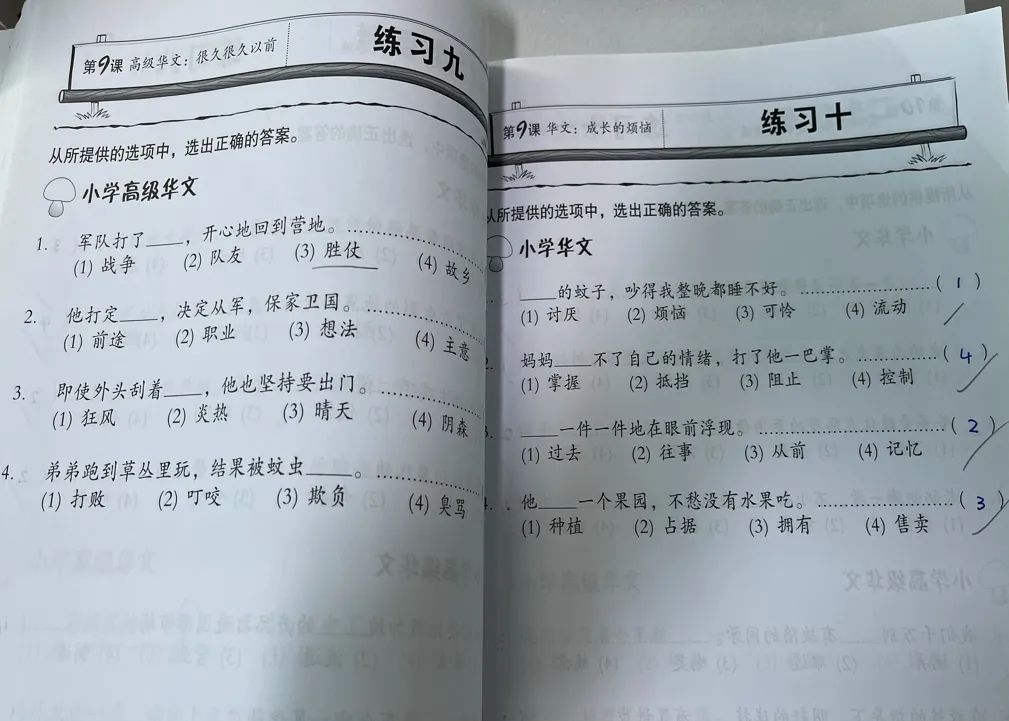 第9课 高级华文：很久很久以前
练习九
从所提供的选项中，选出正确的答案。
小学高级华文
1. 军队打了____，开心地回到营地。
(1) 战争 (2) 队友 (3) 胜仗 (4) 故乡
2. 他打定____，决定从军，保家卫国。
(1) 前途 (2) 职业 (3) 想法 (4) 主意
3. 即使外头刮着____，他也坚持要出门。
(1) 狂风 (2) 炎热 (3) 晴天 (4) 阴森
4. 弟弟跑到草丛里玩，结果被蚊虫____。
(1) 打败 (2) 叮咬 (3) 欺负 (4) 臭骂
第9课 华文：成长的烦恼
练习十
从所提供的选项中，选出正确的答案。
小学华文
____的蚊子，吵得我整晚都睡不好。 ( 1 )
(1) 讨厌 (2) 烦恼 (3) 可怜 (4) 流动
妈妈____不了自己的情绪，打了他一巴掌。 ( 4 )
(1) 掌握 (2) 抵挡 (3) 阻止 (4) 控制
____一件一件地在眼前浮现。 ( 2 )
(1) 过去 (2) 往事 (3) 从前 (4) 记忆
他____一个果园，不愁没有水果吃。 ( 3 )
(1) 种植 (2) 占据 (3) 拥有 (4) 售卖